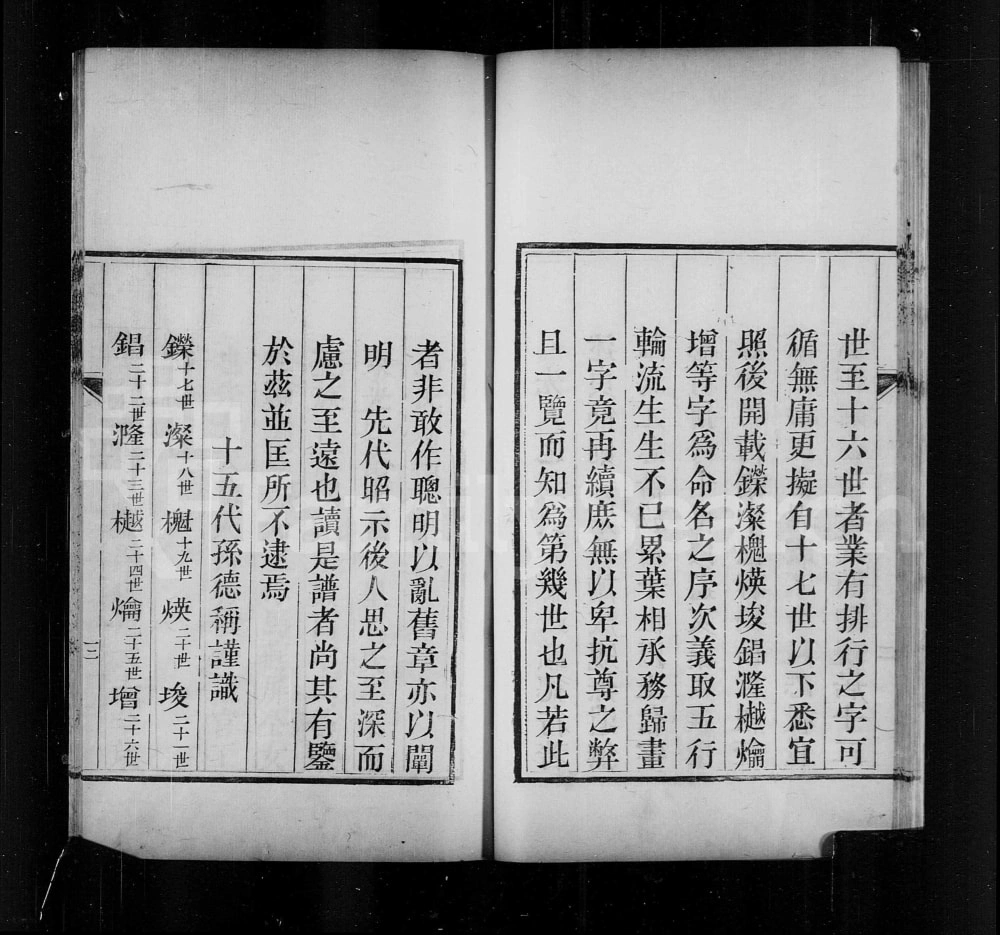 世至十六世者業有排行之字可
循無庸更擬自十七世以下悉宜
照後開載鑅澯櫆煐埈錩漋樾爚
增等字為命名之序次義取五行
輪流生生不已累葉相承務歸畫
一字竟再續庶無以卑抗尊之弊
且一覽而知為第幾世也凡若此
者非敢作聰明以亂舊章亦以闡
明 先代昭示後人思之至深而
慮之至遠也讀是譜者尚其有鑒
於茲並匡所不逮焉
十五代孫德稱謹識
鑅十七世 澯十八世 櫆十九世 煐二十世 埈二十一世
錩二十二世 漋二十三世 樾二十四世 爚二十五世 增二十六世
三